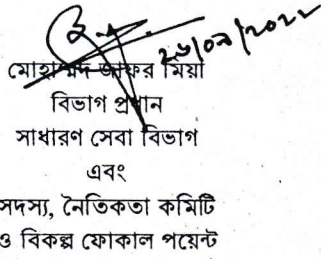 ২৬/০৯/২০২২
মোহাম্মদ জাফর মিয়া
বিভাগ প্রধান
সাধারণ সেবা বিভাগ
এবং
সদস্য, নৈতিকতা কমিটি
ও বিকল্প ফোকাল পয়েন্ট